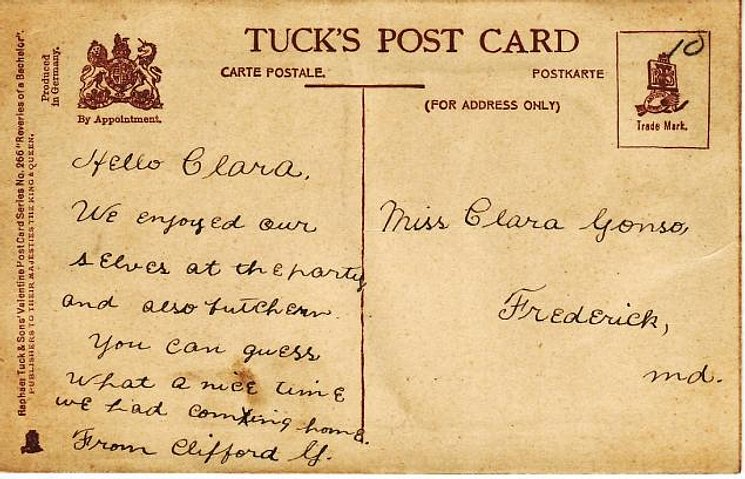 TUCK'S POST CARD
CARTE POSTALE.
POSTKARTE
(FOR ADDRESS ONLY)
Produced
in Germany.
By Appointment.
Trade Mark.
10
Raphael Tuck & Sons' Valentine Post Card Series No. 266 "Reveries of a Bachelor".
PUBLISHERS TO THEIR MAJESTIES THE KING & QUEEN.
Hello Clara.
We enjoyed our
selves at the party
and also butchern.
You can guess
What a nice time
we had coming home.
From Clifford G.
Miss Clara Gonso,
Frederick,
md.